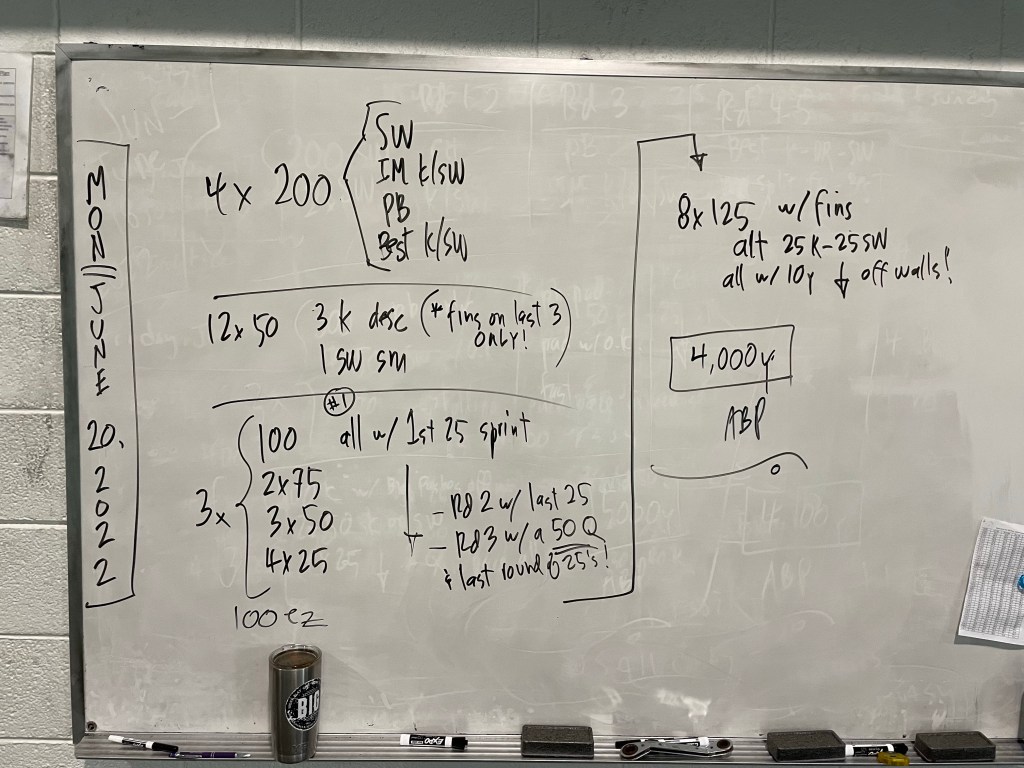 MON JUNE 20, 2022
4x 200
SW
IM K/SW
PB
Best K/SW
12x50 3 k desc (* fins on last 3
ONLY!)
1 sw sm
#1
3x
100 all w/ 1st 25 sprint
2x75
3x50
4x25
- Rd 2 w/ last 25
- Rd 3 w/ a 50 Q
& last round of 25's!
100 ez
8x125 w/ fins
alt 25K-25SW
all w/ 10y ↓ off walls!
4,000y
ABP
BIG
EXPO